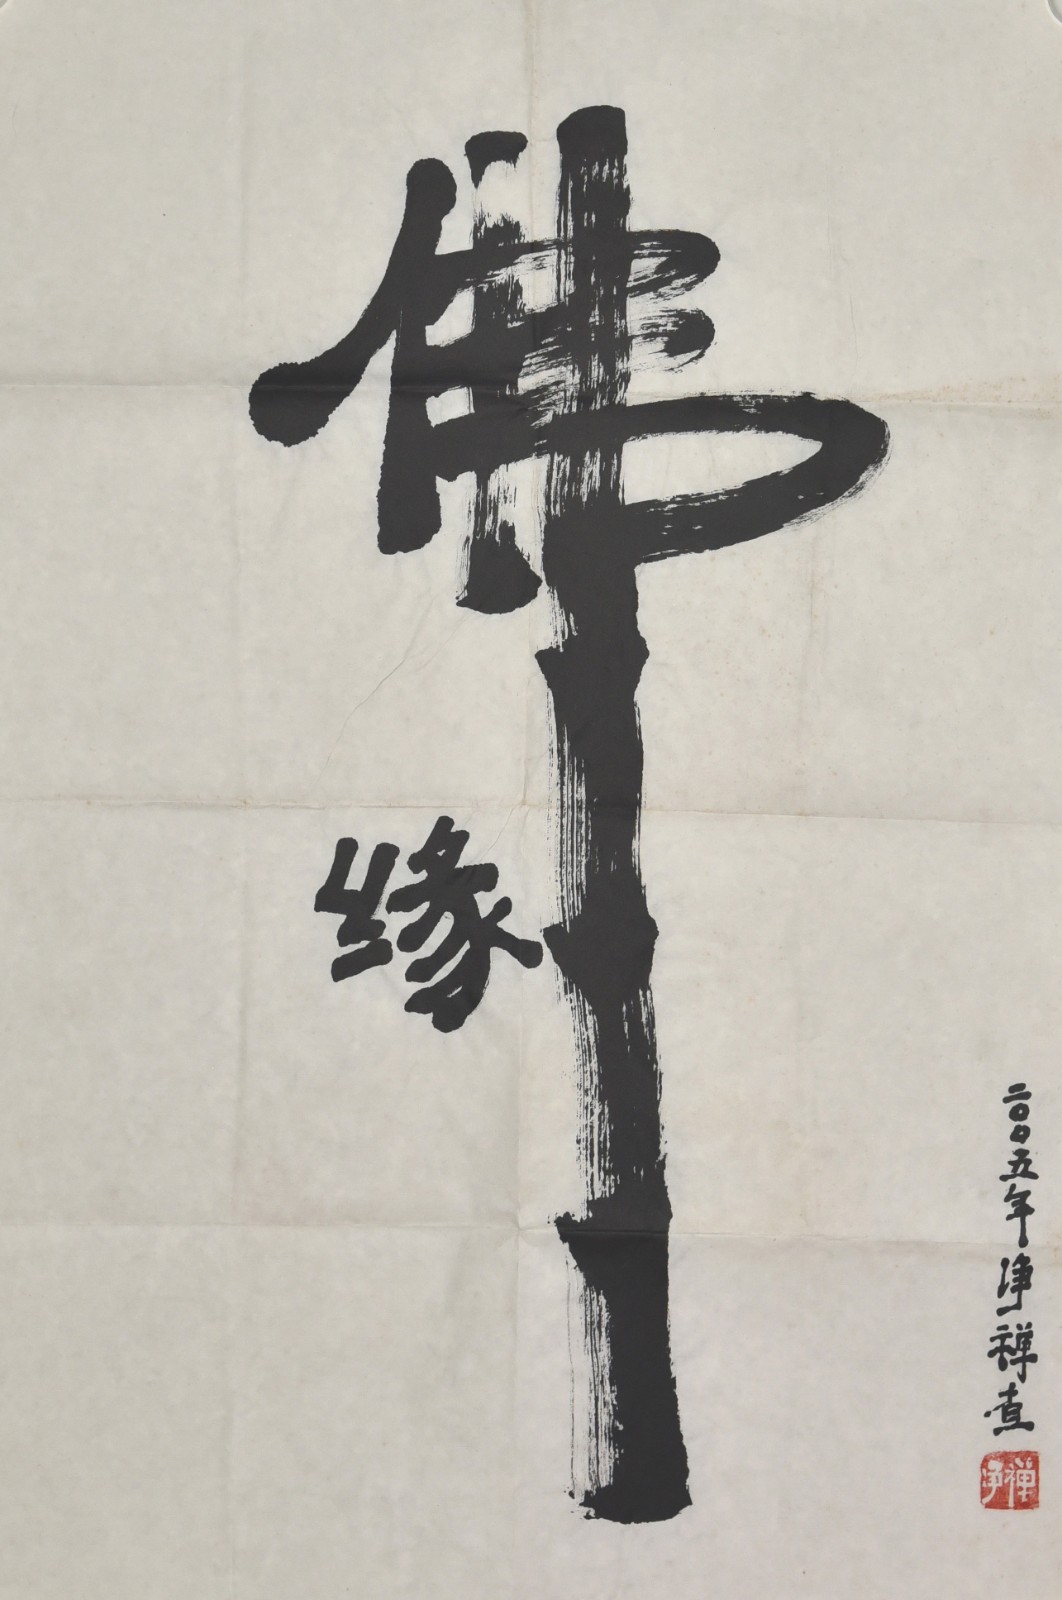 佛
缘
二〇〇五年净禅书
净禅